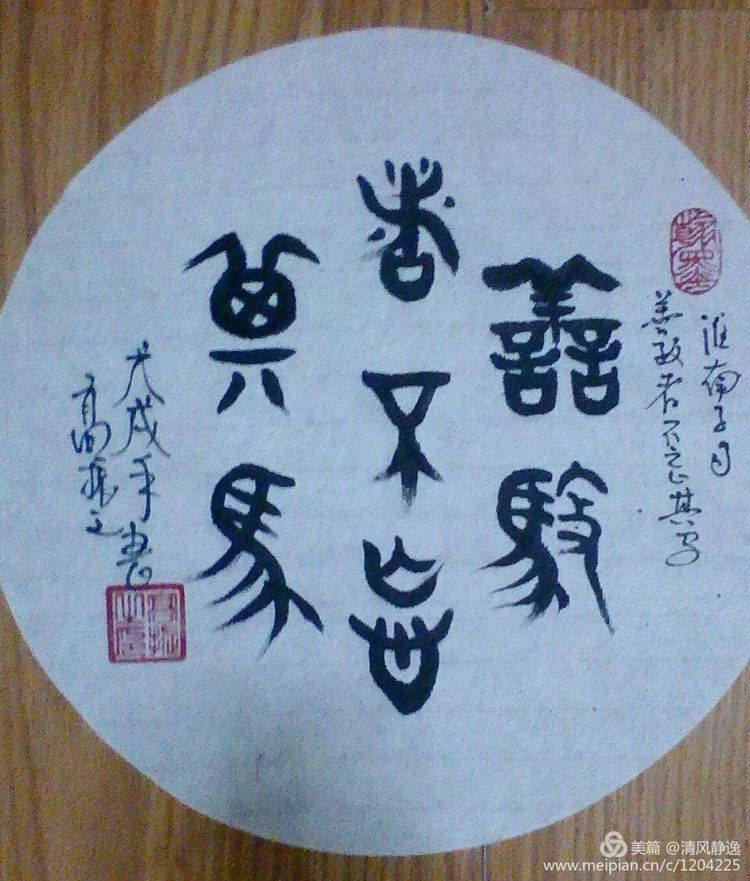 淮南子曰
善驭者不忘其马
善馭
者不忘
其馬
戊戌年书
高振之
美篇 @清风静逸
www.meipian.cn/c/1204225